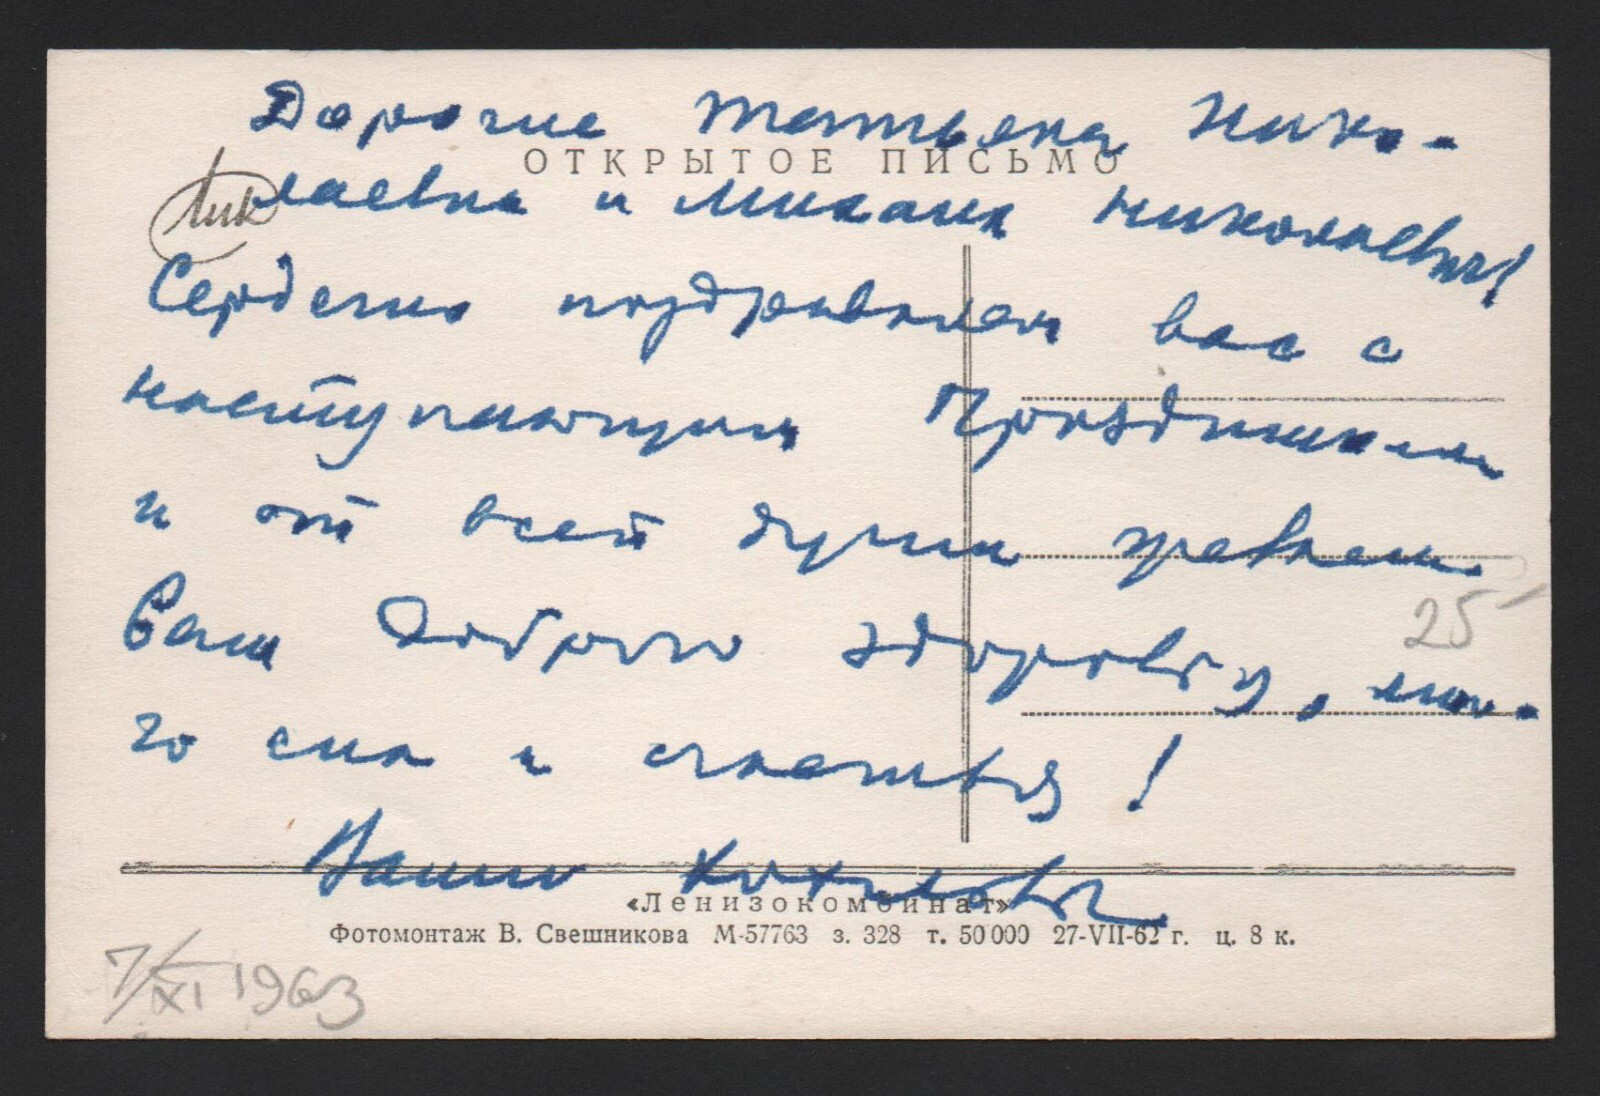 Дорогие Татьяна Нико-
ОТКРЫТОЕ ПИСЬМО
лаевна и Михаил Николаевич!
Сердечно поздравляем вас с
наступающим Праздником
и от всей души желаем
Вам доброго здоровья, мно-
го сил и счастья!
«Ленизокомбинат»
Фотомонтаж В. Свешникова М-57763 з. 328 т. 50 000 27-VII-62 г. ц. 8 к.
25
7/XI 1963